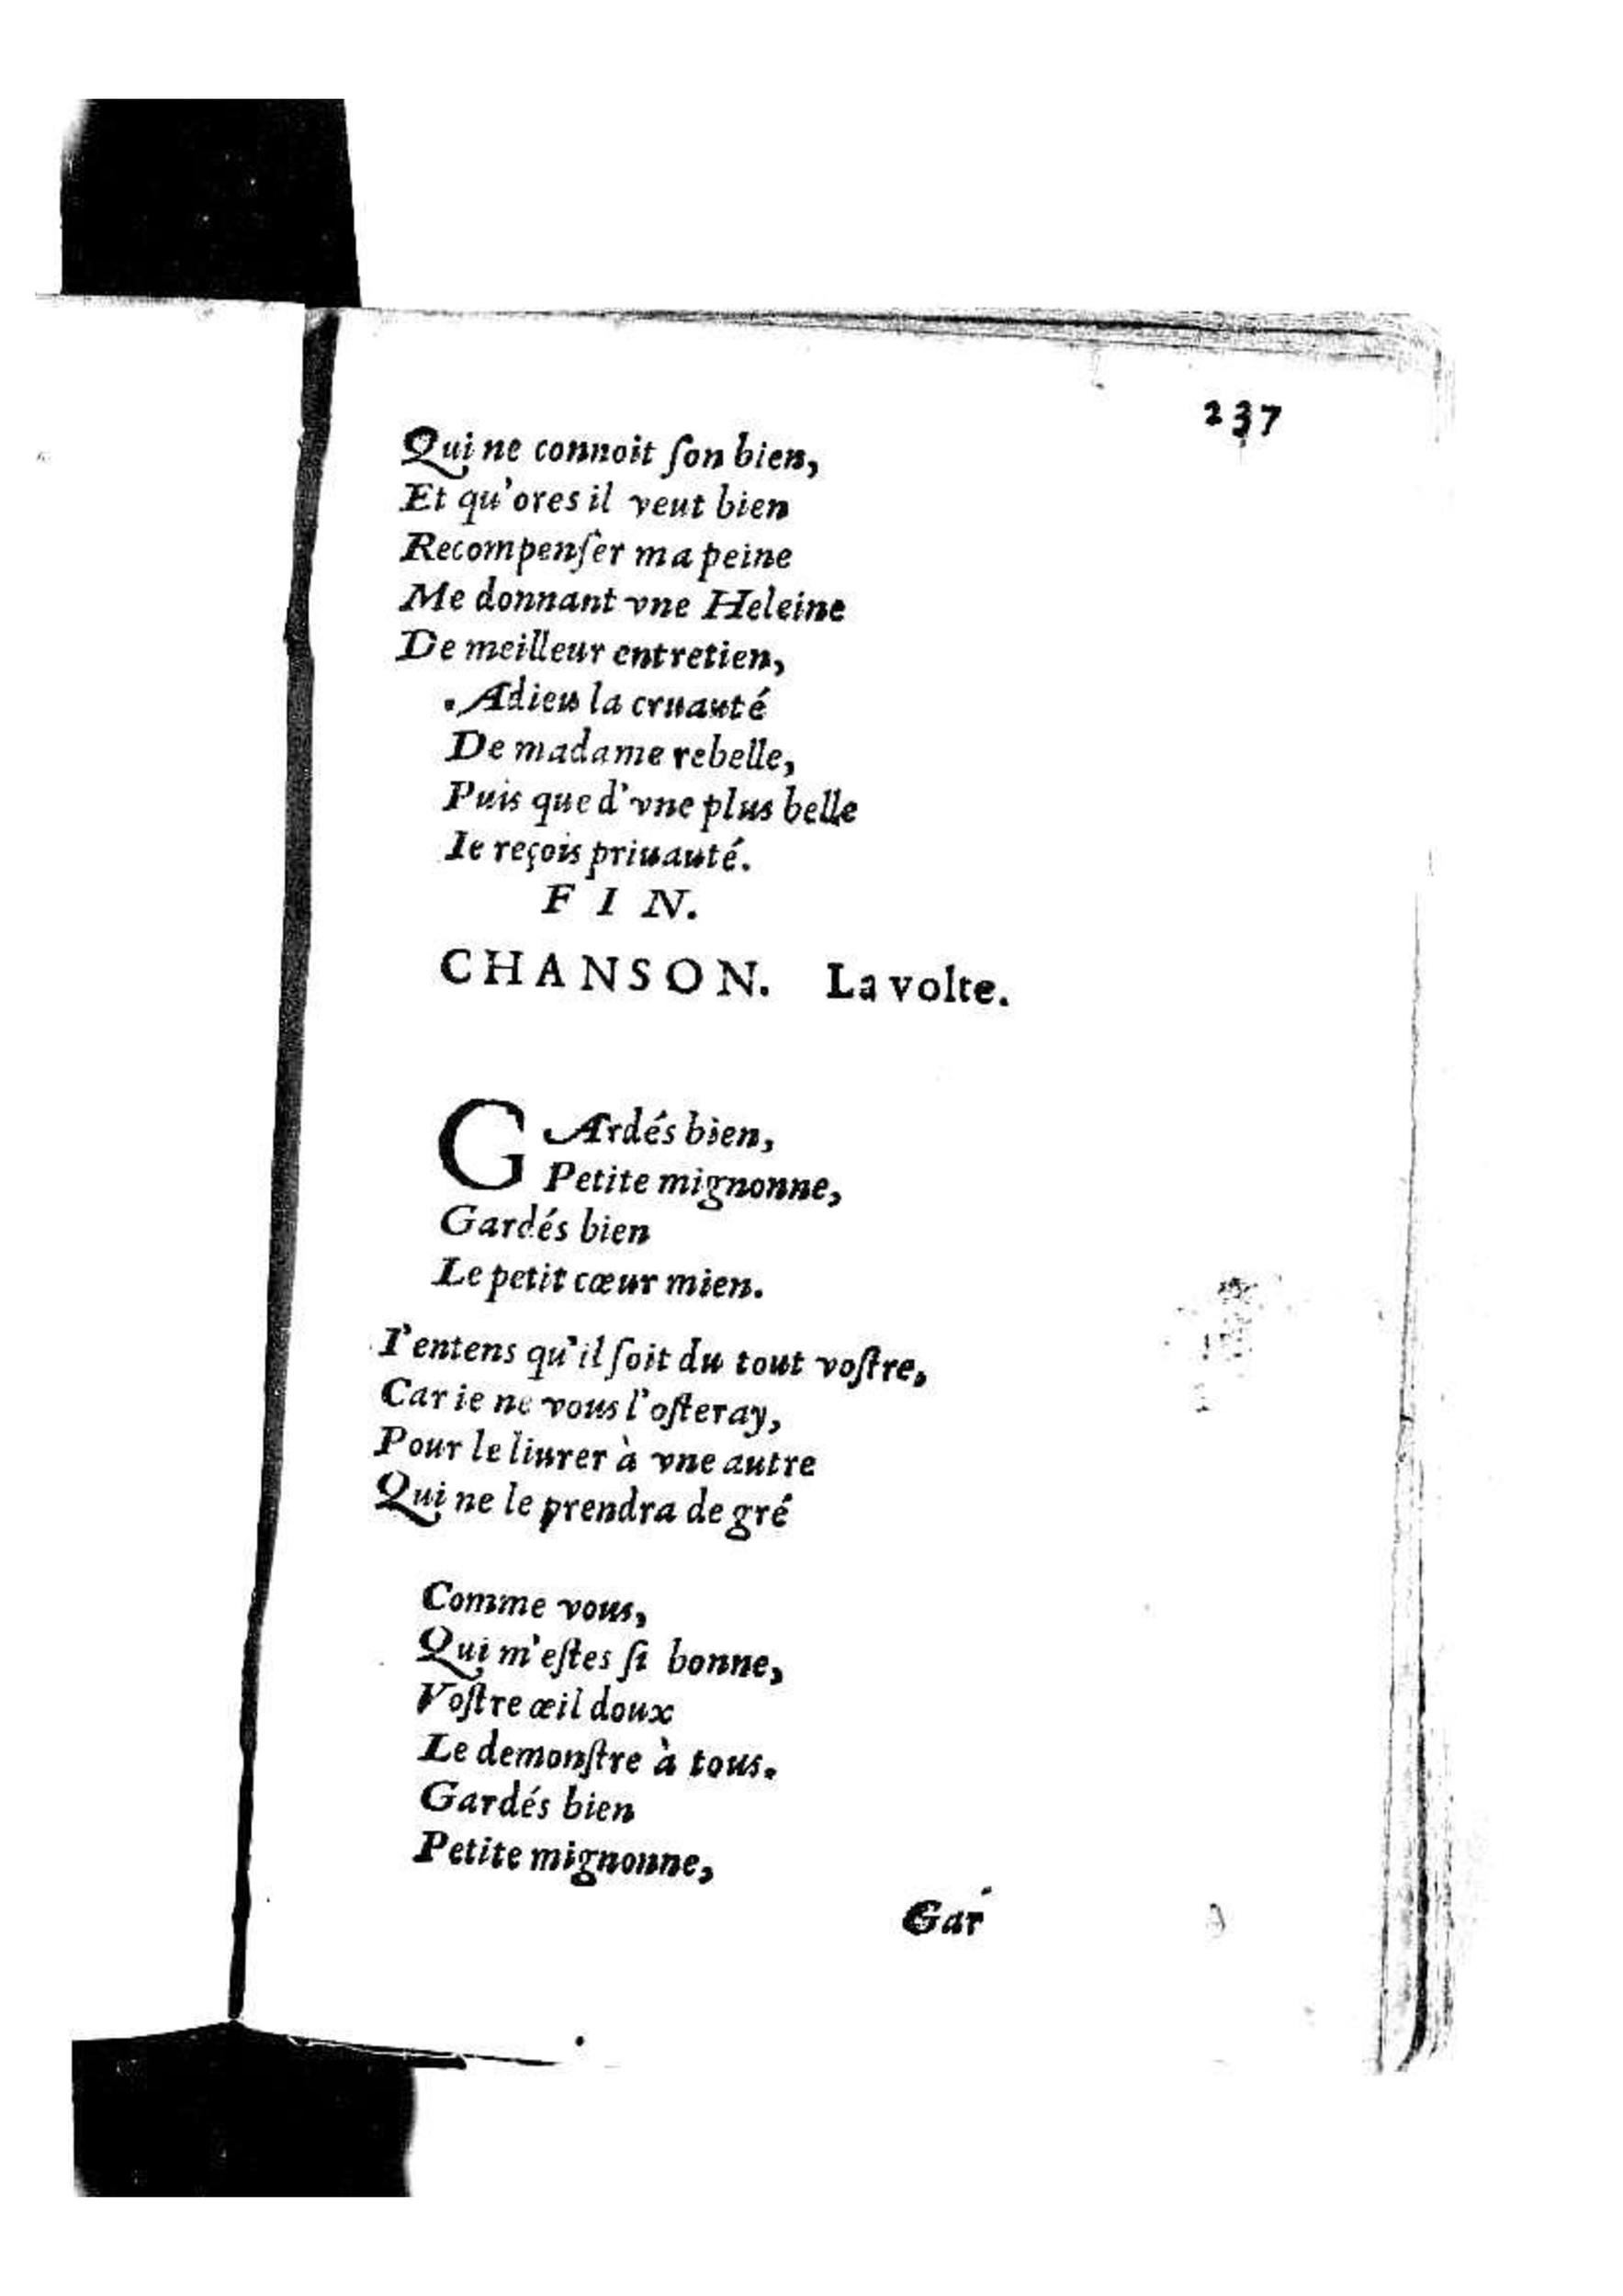 237
Qui ne connoit ſon bien,
Et qu'ores il veut bien
Recompenſer ma peine
Me donnant vne Heleine
De meilleur entretien,
Adieu la cruauté
De madame rebelle,
Puis que d'vne plus belle
Ie reçois priuauté.
F I N.
CHANSON. La volte.
GArdés bien,
Petite mignonne,
Gardés bien
Le petit cœur mien.
I'entens qu'il ſoit du tout voſtre,
Car ie ne vous l'oſteray,
Pour le liurer à vne autre
Qui ne le prendra de gré
Comme vous,
Qui m'eſtes ſi bonne,
Voſtre œil doux
Le demonſtre à tous.
Gardés bien
Petite mignonne,
Gar